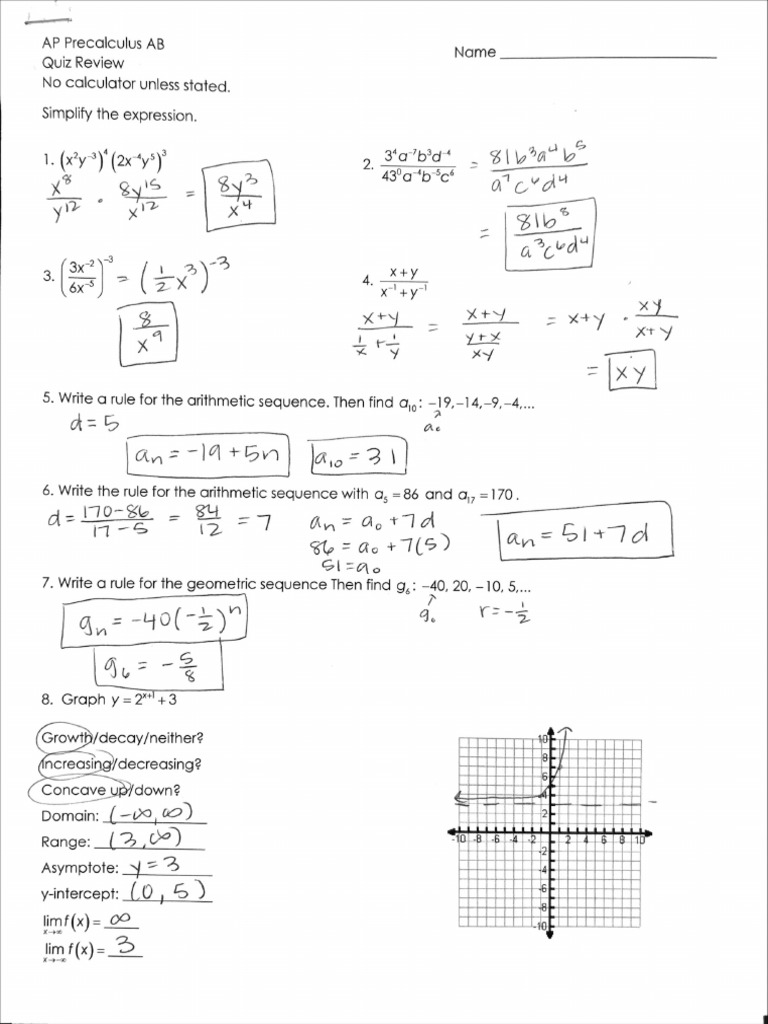 AP Precalculus AB
Name
Quiz Review
No calculator unless stated.
Simplify the expression.
1. (x²y⁻³)⁴(2x⁻⁴y⁵)³
x⁸/y¹² · 8y¹⁵/x¹² = 8y³/x⁴
2. 3⁴a⁻⁷b³d⁻⁴/43⁰a⁻⁴b⁻⁵c⁶ = 81b³a⁴b⁵/a⁷c⁶d⁴
= 81b⁸/a³c⁶d⁴
3. (3x⁻²/6x⁻⁵)⁻³ = (1/2 x³)⁻³
8/x⁹
4. x+y/x⁻¹+y⁻¹
x+y/(1/x + 1/y) = x+y/(y+x/xy) = x+y · xy/x+y
= xy
5. Write a rule for the arithmetic sequence. Then find a₁₀: –19, –14, –9, –4,...
d = 5
a₀
aₙ = -19 + 5n
a₁₀ = 31
6. Write the rule for the arithmetic sequence with a₅ = 86 and a₁₇ = 170.
d = 170-86/17-5 = 84/12 = 7
aₙ = a₀ + 7d
86 = a₀ + 7(5)
51 = a₀
aₙ = 51 + 7d
7. Write a rule for the geometric sequence Then find g₆: –40, 20, –10, 5,...
g₀ r = -1/2
gₙ = -40(-1/2)ⁿ
g₆ = -5/8
8. Graph y = 2ˣ⁺¹ + 3
Growth/decay/neither?
Increasing/decreasing?
Concave up/down?
Domain: (-∞, ∞)
Range: (3, ∞)
Asymptote: y = 3
y-intercept: (0, 5)
lim f(x) = ∞
x→∞
lim f(x) = 3
x→-∞
10
8
6
4
2
-10 -8 -6 -4 -2 2 4 6 8 10
-2
-4
-6
-8
-10